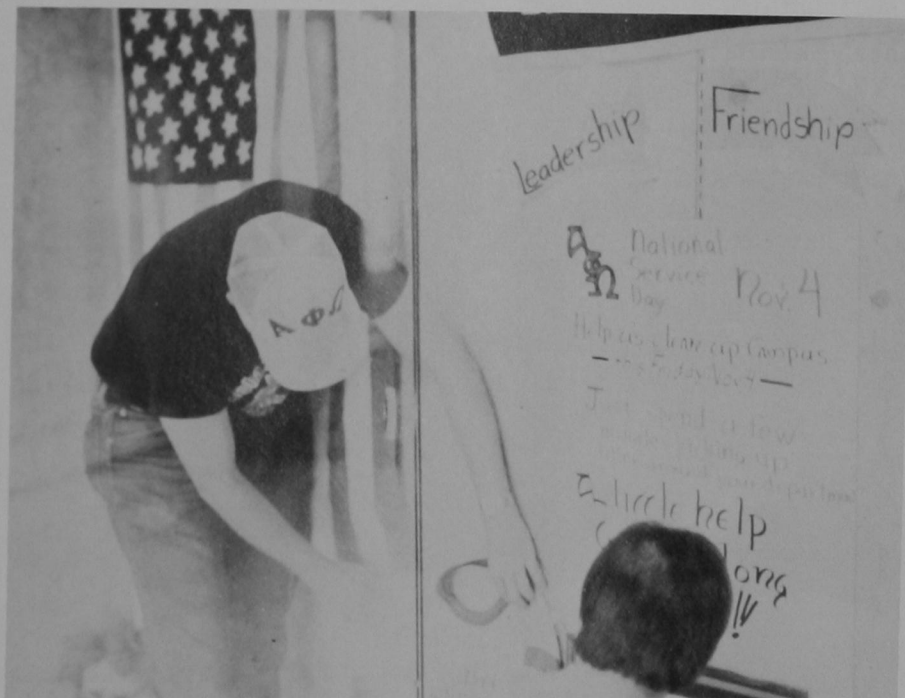 Leadership
Friendship
ΑΦΩ
National
Service
Day
Nov. 4
Help us clean up Campus
Just spend a few
minutes picking up
A little help
long
!!!
ΑΦΩ